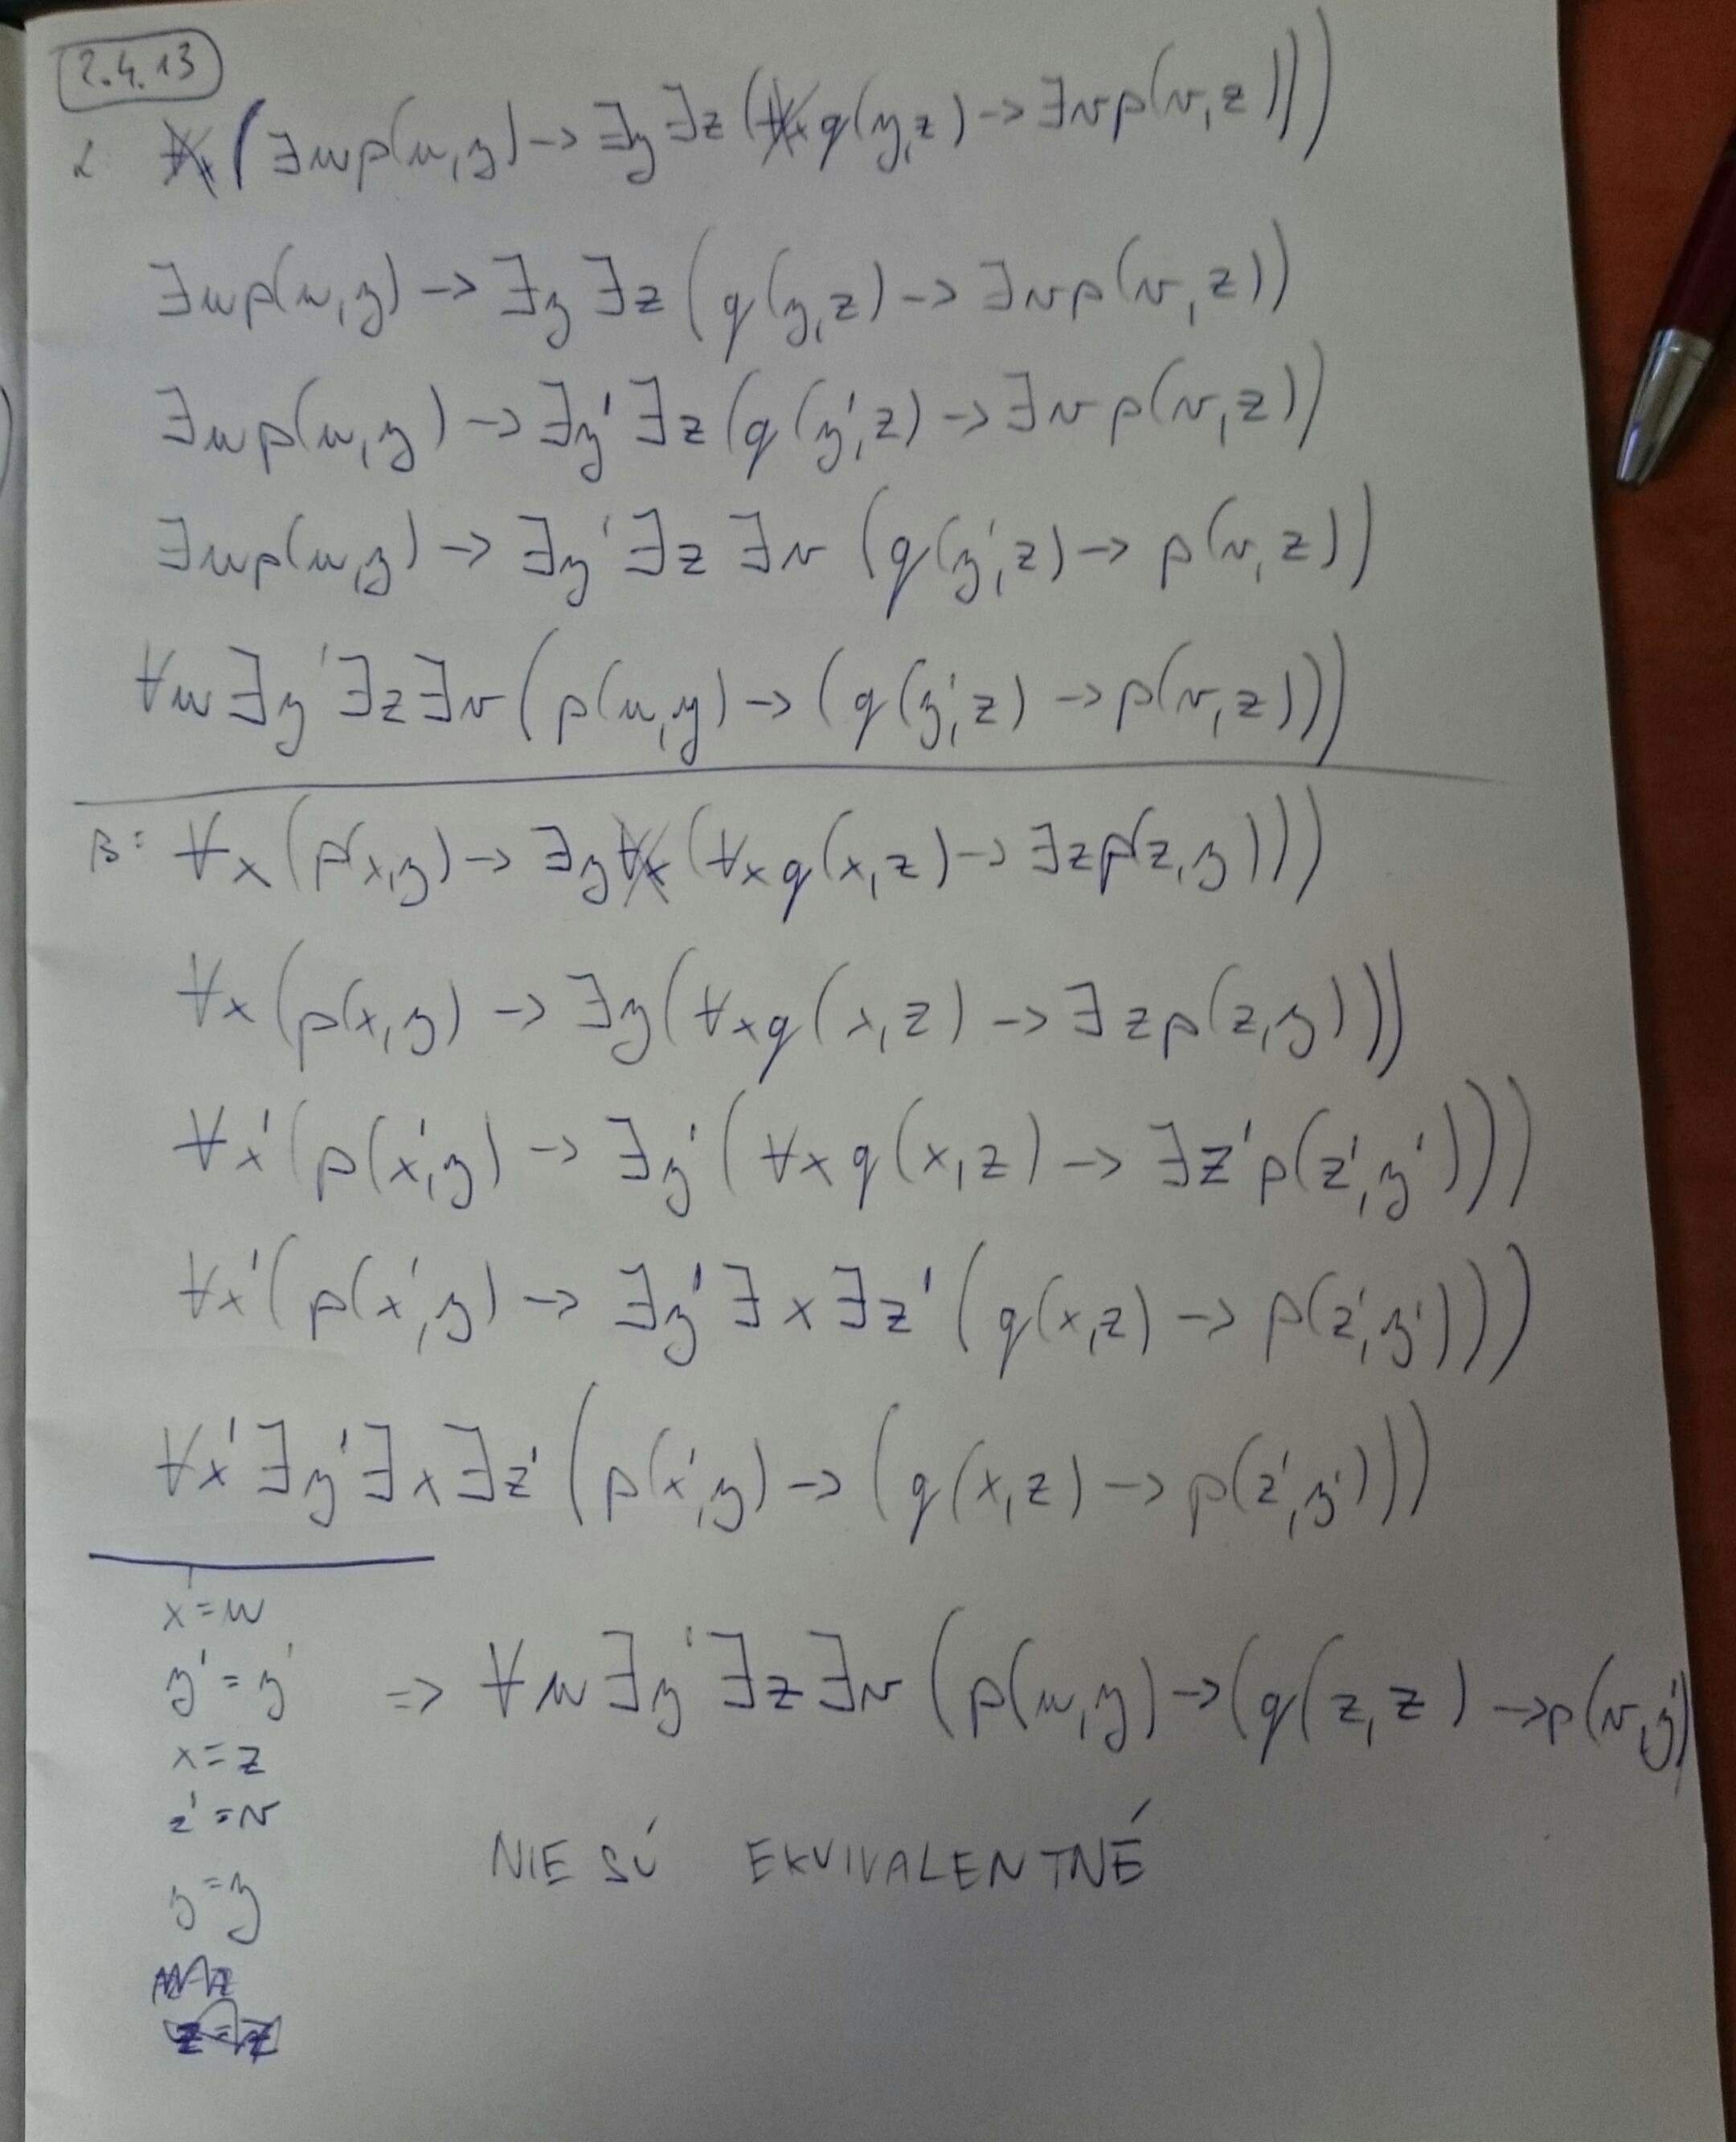 2.4.13
α: ∀x (∃u p(u,y) -> ∃y ∃z (∀x q(y,z) -> ∃v p(v,z)))
∃u p(u,y) -> ∃y ∃z (q(y,z) -> ∃v p(v,z))
∃u p(u,y) -> ∃y' ∃z (q(y',z) -> ∃v p(v,z))
∃u p(u,y) -> ∃y' ∃z ∃v (q(y',z) -> p(v,z))
∀u ∃y' ∃z ∃v (p(u,y) -> (q(y',z) -> p(v,z)))
β: ∀x (p(x,y) -> ∃y ∀x (∀x q(x,z) -> ∃z p(z,y)))
∀x (p(x,y) -> ∃y (∀x q(x,z) -> ∃z p(z,y)))
∀x' (p(x',y) -> ∃y' (∀x q(x,z) -> ∃z' p(z',y')))
∀x' (p(x',y) -> ∃y' ∃x ∃z' (q(x,z) -> p(z',y')))
∀x' ∃y' ∃x ∃z' (p(x',y) -> (q(x,z) -> p(z',y')))
x' = u
y' = y'
=> ∀u ∃y' ∃z ∃v (p(u,y) -> (q(z,z) -> p(v,y')
x = z
z' = v
y = y
z = z
NIE SÚ EKVIVALENTNÉ